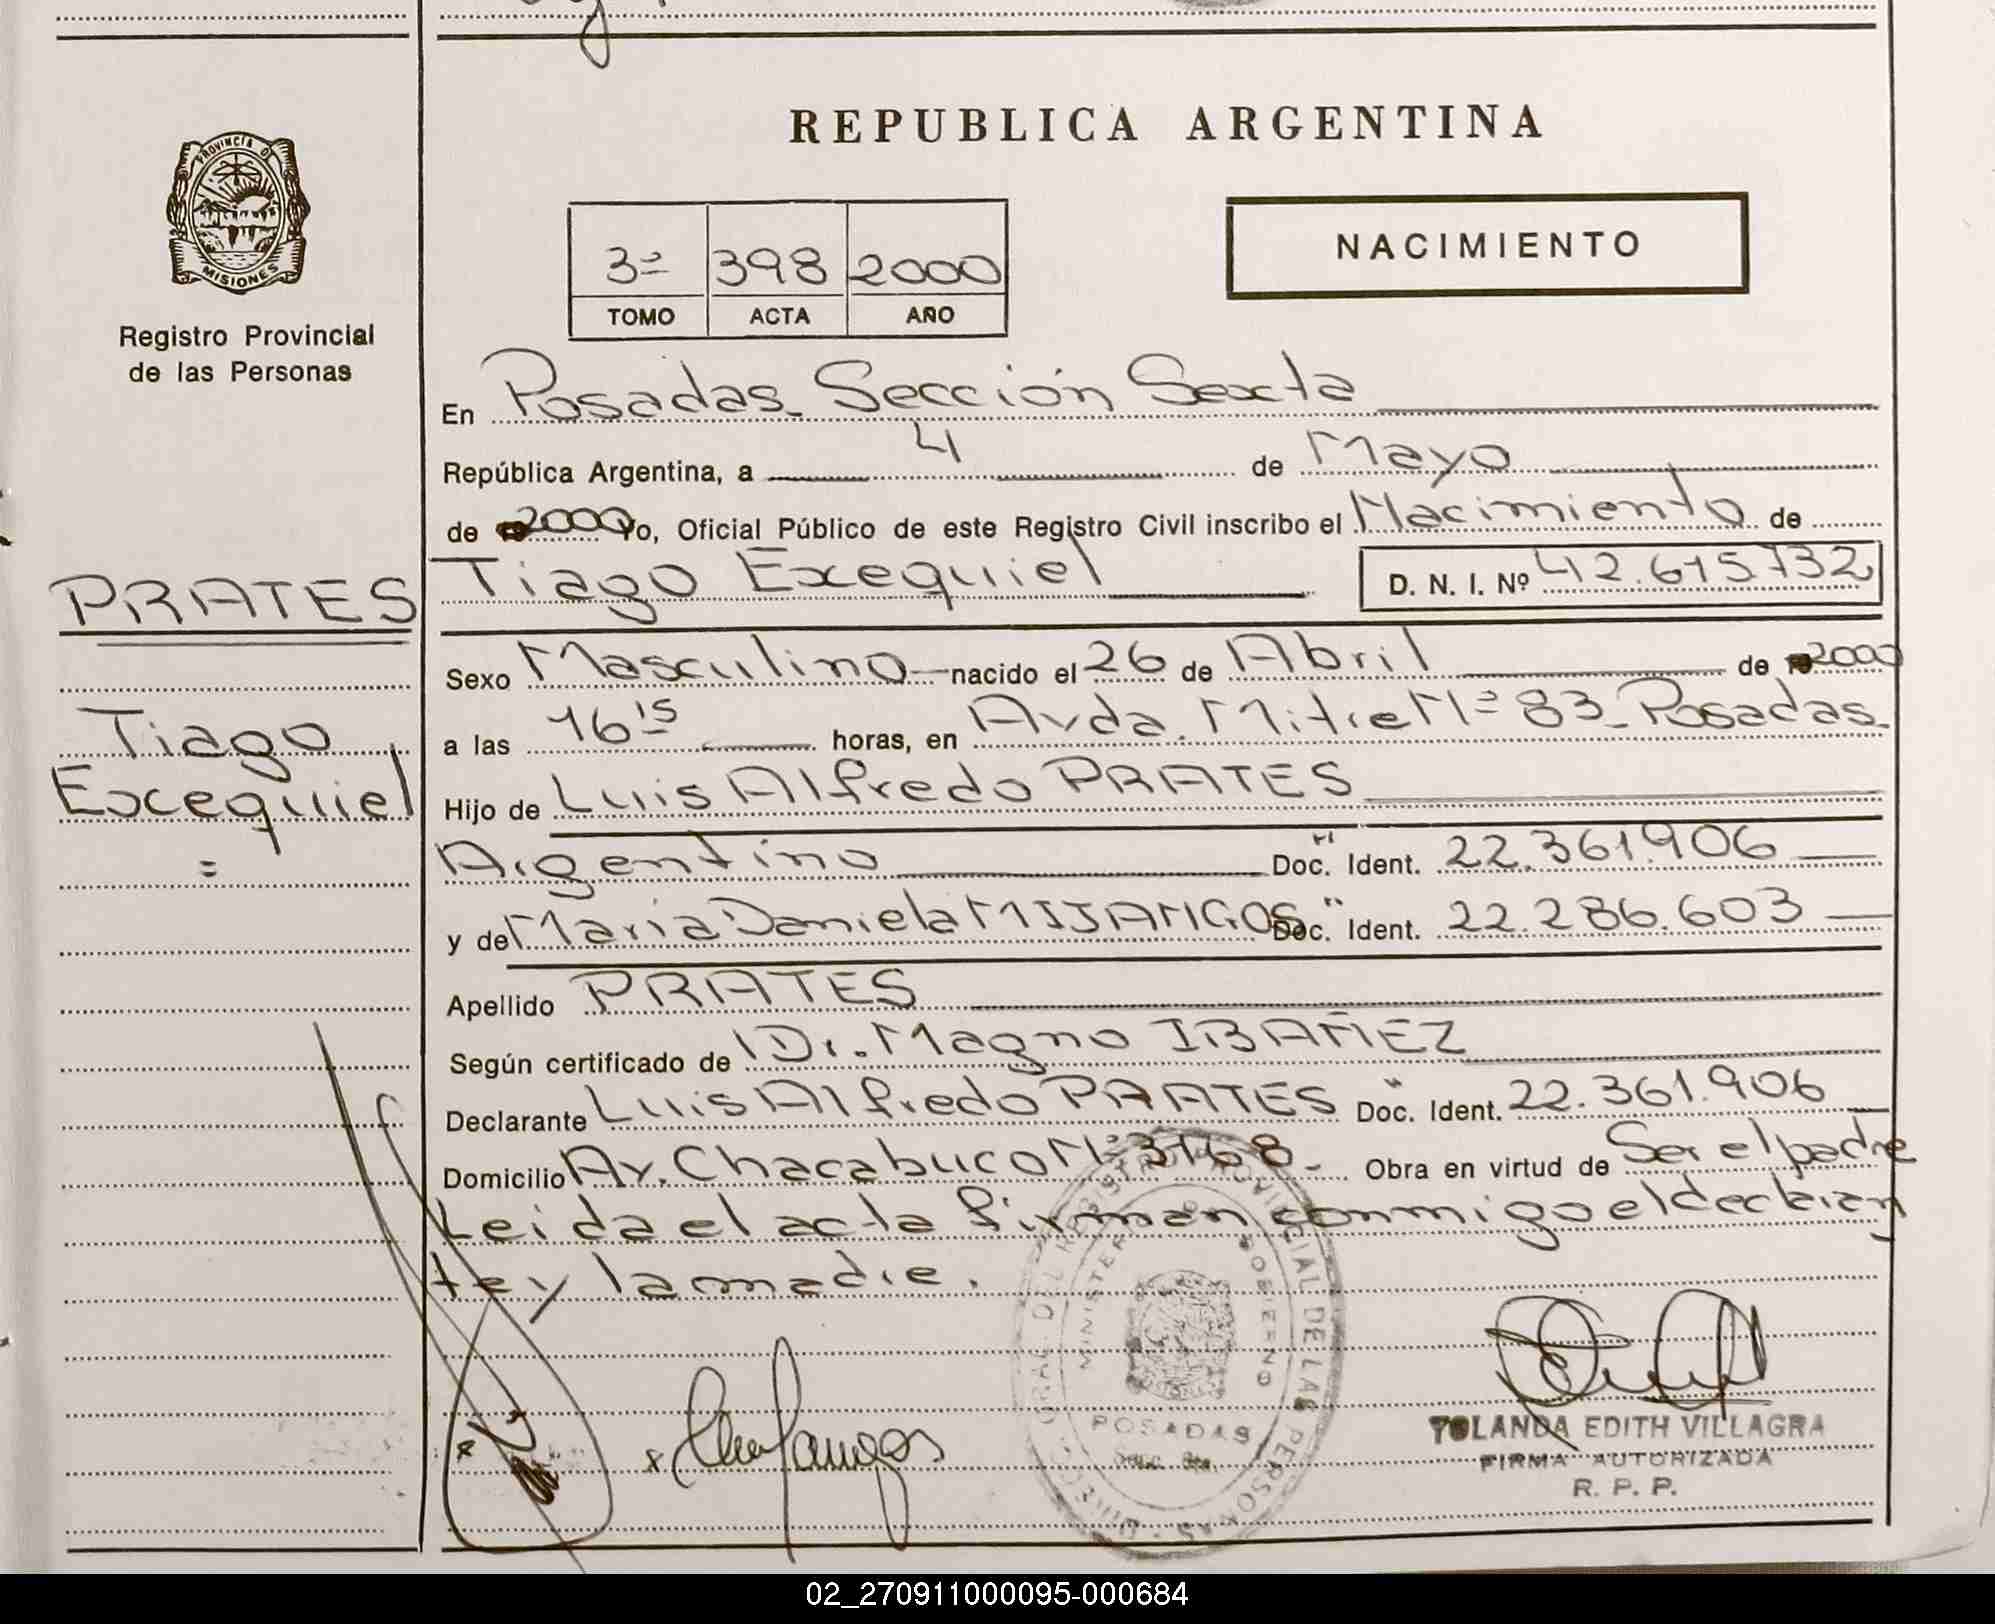 REPUBLICA ARGENTINA
PROVINCIA DE MISIONES
Registro Provincial
de las Personas
3º 398 2000
TOMO ACTA AÑO
NACIMIENTO
En Posadas Sección Sexta
República Argentina, a 4 de Mayo
de 2000 Yo, Oficial Público de este Registro Civil inscribo el Nacimiento de
PRATES
Tiago Exequiel D. N. I. Nº 42.615.732
Sexo Masculino nacido el 26 de Abril de 2000
Tiago
a las 16 15 horas, en Avda. Mitre Nº 83 Posadas
Excequiel
Hijo de Luis Alfredo PRATES
=
Argentino Doc. Ident. 22.361.906
y de Maria Daniela MIJANGOS Doc. Ident. 22.286.603
Apellido PRATES
Según certificado de Dr. Magno IBAÑEZ
Declarante Luis Alfredo PRATES Doc. Ident. 22.361.906
Domicilio Av. Chacabuco Nº 3168. Obra en virtud de Ser el padre
Leida el acta firman conmigo el declaran
te y la madre.
MINISTERIO DE GOBIERNO
POSADAS
YOLANDA EDITH VILLAGRA
FIRMA AUTORIZADA
R. P. P.
02_270911000095-000684